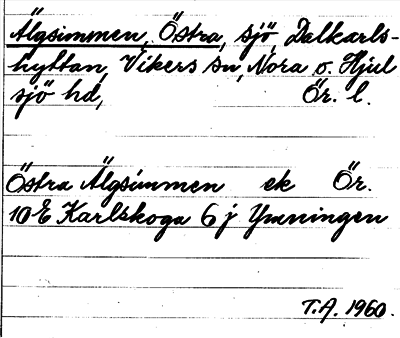 Älgsimmen, Östra, sjö, Dalkarls-
hyttan, Vikers sn, Nora o. Hjul
sjö hd, Ör. l.
Östra Älgsimmen ek Ör.
10E Karlskoga 6 j Ymningen
T.A. 1960.